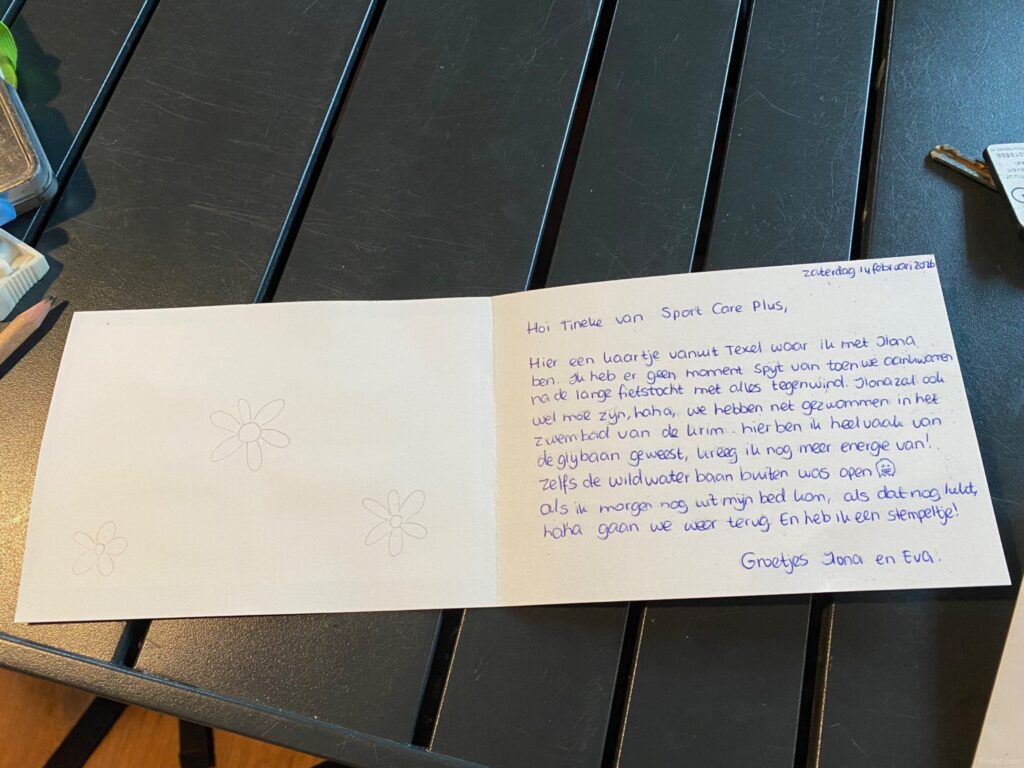 zaterdag 14 februari 2026
Hoi Tineke van Sport Care Plus,
Hier een kaartje vanuit Texel waar ik met Ilona
ben. Ik heb er geen moment spijt van toen we aankwamen
na de lange fietstocht met alles tegenwind. Ilona zal ook
wel moe zijn, haha, we hebben net gezwommen in het
zwembad van de krim. hier ben ik heel vaak van
de glybaan geweest, kreeg ik nog meer energie van!
zelfs de wildwaterbaan buiten was open
als ik morgen nog uit mijn bed kom, als dat nog lukt,
haha gaan we weer terug. En heb ik een stempeltje!
Groetjes Ilona en Eva.